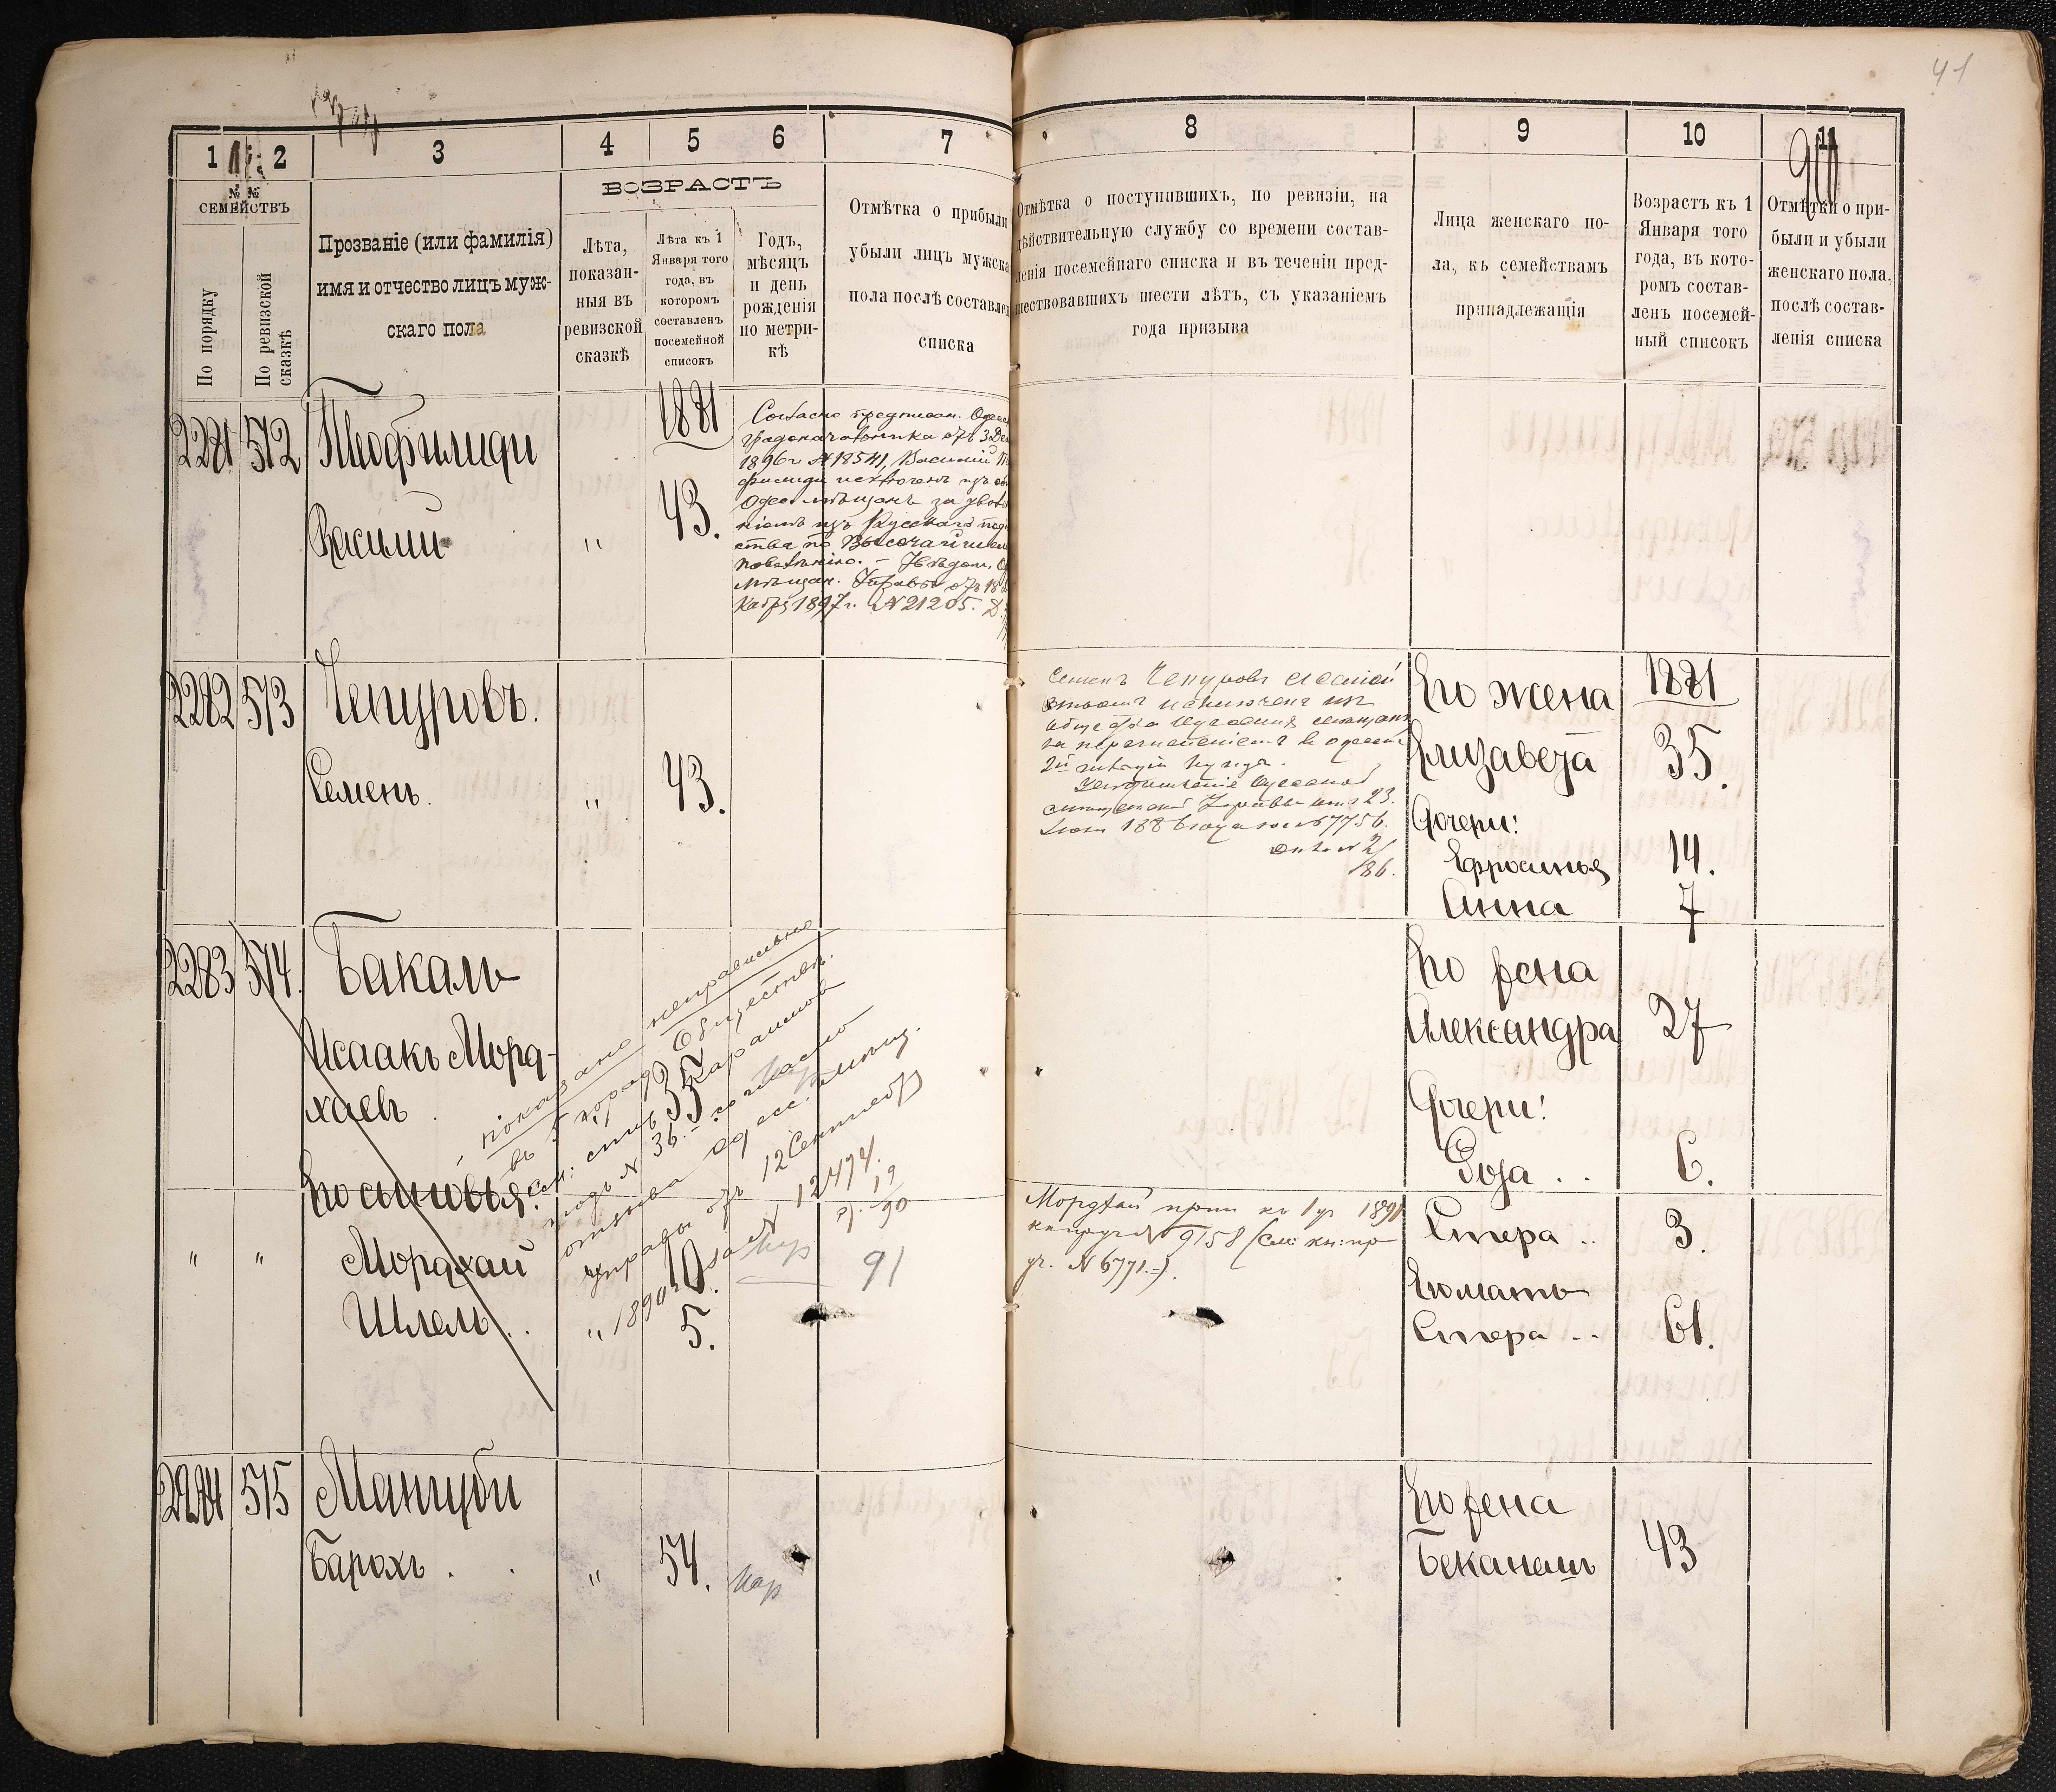 41
1
2
3
4
5
6
7
8
9
10
11
№ №
СЕМЕЙСТВЪ
По порядку
По ревизской
сказкѣ
Прозваніе (или фамилія)
имя и отчество лицъ муж-
скаго пола
ВОЗРАСТЪ
Лѣта,
показан-
ныя въ
ревизской
сказкѣ
Лѣта къ 1
Января того
года, въ
которомъ
составленъ
посемейной
списокъ
Годъ,
мѣсяцъ
и день
рожденія
по метри-
кѣ
Отмѣтка о прибыли
убыли лицъ мужска
пола послѣ составле
списка
Отмѣтка о поступившихъ, по ревизіи, на
дѣйствительную службу со времени состав-
ленія посемейнаго списка и въ теченіи пред-
шествовавшихъ шести лѣтъ, съ указаніемъ
года призыва
Лица женскаго по-
ла, къ семействамъ
принадлежащія
Возрастъ къ 1
Января того
года, въ кото-
ромъ состав-
ленъ посемей-
ный списокъ
Отмѣтки о при-
были и убыли
женскаго пола,
послѣ состав-
ленія списка
2281 512 Теофилиди
Василий
"
1881
43.
Согласно предписан. Одес
градоначальника отъ 3 Де
1896 г №18541, Василій
филиди исключенъ изъ
Одес. мѣщанъ за уволь
ніемъ изъ Русскаго под
ства по Высочайшем
повелѣнію. — Увѣдом. О
мѣщан. Управы отъ 18
кабря 1897 г. №21205.
2282 573 Чепуровъ.
Семенъ.
" 43.
Семенъ Чепуровъ съ семей
ствомъ исключенъ изъ
общества Одесскихъ мѣщанъ
за перечисленіемъ въ одесскіе
2й гильдіи купцы.
Увѣдомленіе Одесской
мѣщанской Управы отъ 23.
Его жена 1881
Елизавета 35.
Дочери:
Ефросинья 14.
Анна 7
2283 574. Бакалъ
Исаакъ Морд-
хаевъ
35
Его сыновья:
" " Мордхай 10.
Шлема .. " 5.
показано неправильно
въ 5 Обществен.
Караимовъ
подъ № 36. — согласно
отзыва Одесс. мѣщ.
управы отъ 12 Сентябр
1890 г за № 12474.
Кар
91
Мордхай
№ 9158
уч. № 6771.=).
Его жена
Александра 27
Дочери:
Роза .. 6.
Стера .. 3.
Его мать
Стера .. 61.
2284 515 Мангуби
Барохъ . . " 54. Кар
Его жена
Беканашъ 43